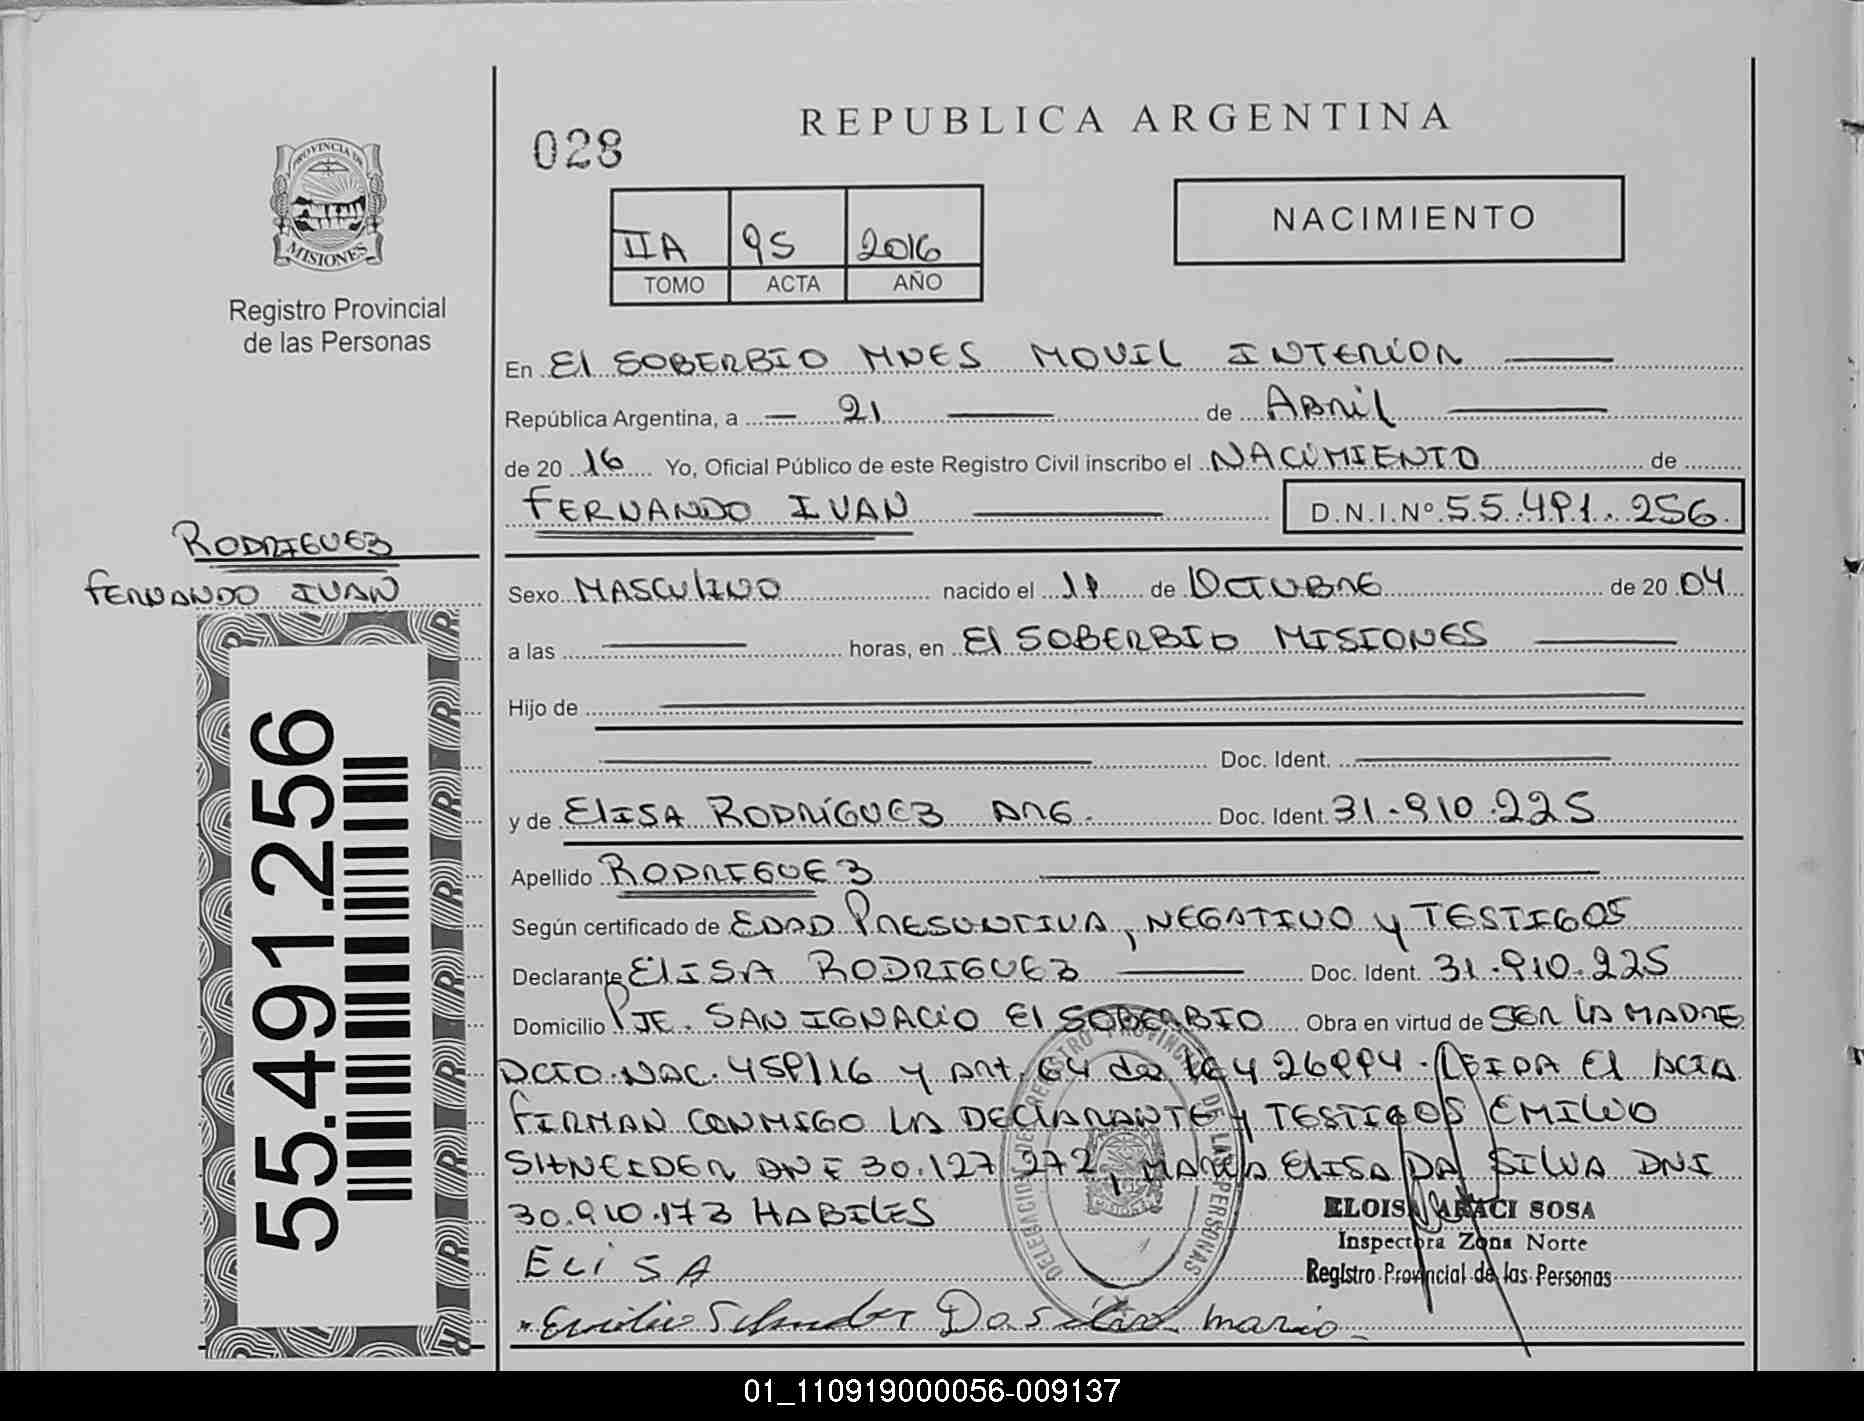 REPUBLICA ARGENTINA
028
NACIMIENTO
PROVINCIA DE
MISIONES
Registro Provincial
de las Personas
IIA 95 2016
TOMO ACTA AÑO
En El SOBERBIO MNES MOVIL INTERIOR
República Argentina, a 21 de ABRIL
de 20 16 Yo, Oficial Público de este Registro Civil inscribo el NACIMIENTO de
FERNANDO IVAN D.N.I.Nº 55.491.256
RODRIGUEZ
FERNANDO IVAN
Sexo MASCULINO nacido el 11 de OCTUBRE de 20 04
a las horas, en El SOBERBIO MISIONES
Hijo de
Doc. Ident.
y de ELISA RODRÍGUEZ ARG. Doc. Ident. 31.910.225
Apellido RODRIGUEZ
Según certificado de EDAD PRESUNTIVA, NEGATIVO y TESTIGOS
Declarante ELISA RODRIGUEZ Doc. Ident. 31.910.225
Domicilio PJE. SAN IGNACIO El SOBERBIO Obra en virtud de SER LA MADRE
DCTO.NAC.459/16 y Art. 64 de Ley 26994. LEIDA El ACTA
FIRMAN CONMIGO LA DECLARANTE y TESTIGOS EMILIO
SHNEIDER DNI 30.127.272, MARIA ELISA DA SILVA DNI
30.910.173 HABILES
ELISA
Emilio Schneider Da silva maria
DELEGACION DE REGISTRO PROVINCIAL DE LAS PERSONAS
ELOISA ARACI SOSA
Inspectora Zona Norte
Registro Provincial de las Personas
55.491.256
01_110919000056-009137